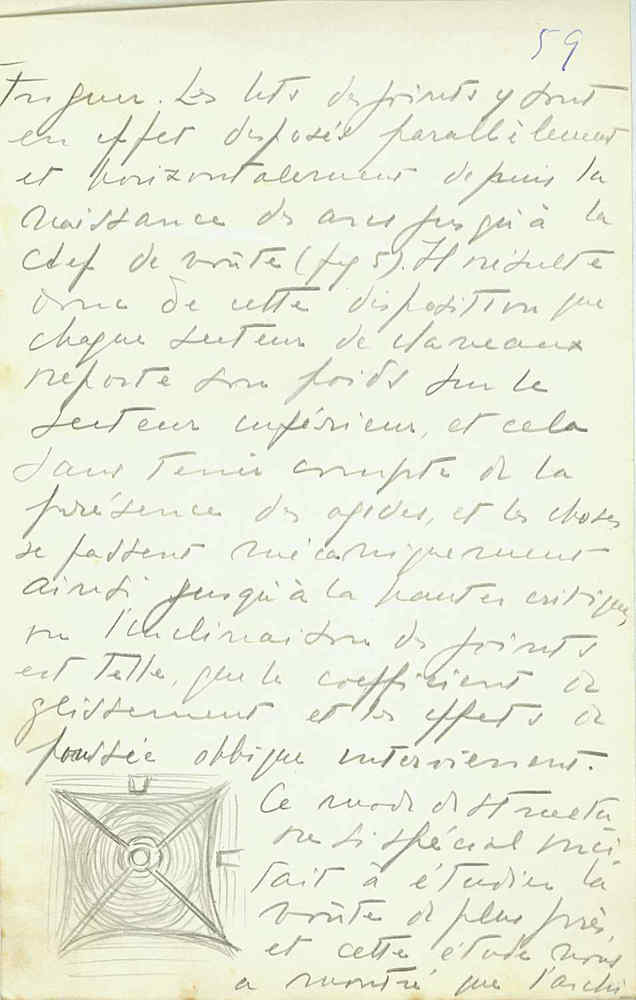 59
triguer. Les lits des joints y sont
en effet disposés parallèlement
et horizontalement depuis la
naissance des arcs jusqu'à la
clef de voûte (fig 5). Il résulte
donc de cette disposition que
chaque secteur de claveaux
reporte son poids sur le
secteur inférieur, et cela
sans tenir compte de la
présence des ogives, et les choses
se passent mécaniquement
ainsi jusqu'à la hauteur critique,
où l'inclinaison des joints
est telle, que le coefficient de
glissement et les effets de
poussée oblique interviennent.
Ce mode de structu
re si spécial inci
tait à étudier la
voûte de plus près,
et cette étude nous
a montré que l'archi